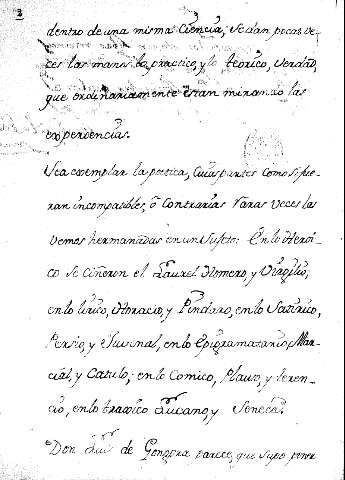 2
dentro de una misma Ciencia, se dan pocas ve-
ces las manos lo practico, y lo teorico, verdad,
que ordinariamente estan mirando las
experiencias.
Sea exemplar la poetica, cuias partes como si fue
ran incompasibles, ô Contrarias raras veces las
vemos hermanadas en un Sujeto: En lo Heroi-
co se ciñeron el Laurel Homero, y Virgilio;
en lo lirico, Horacio, y Pindaro, en lo Satirico,
Persio, y Juvinal, en lo Epigramatario, Mar-
cial, y Catulo; en lo Comico, Plauto, y teren-
cio, en lo tragico Lucano, y Seneca.
Don Luis de Gongora parece, que supo poner